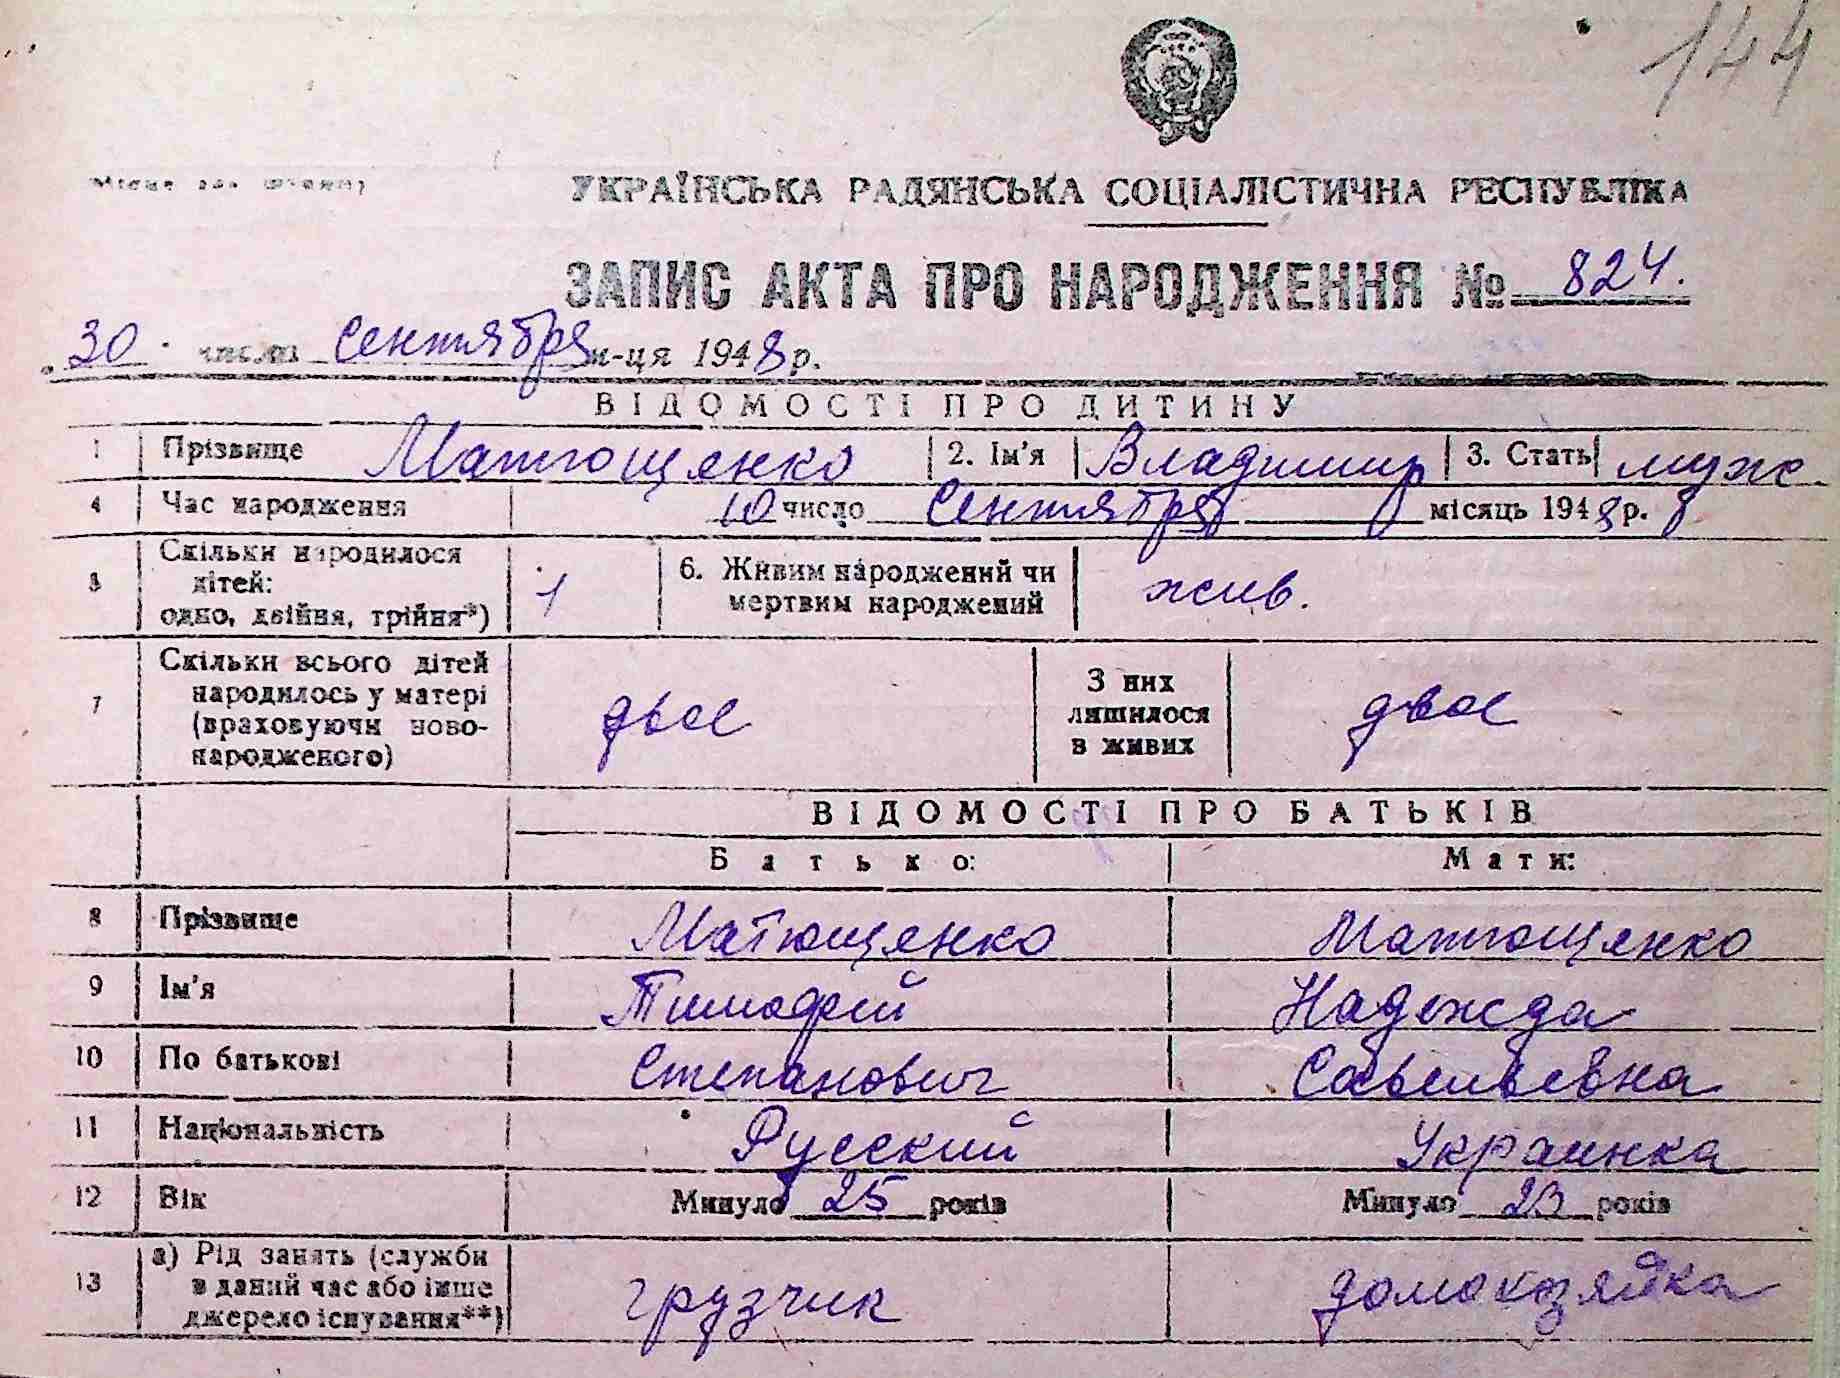 144
(Місце для штампу)
УКРАЇНСЬКА РАДЯНСЬКА СОЦІАЛІСТИЧНА РЕСПУБЛІКА
ЗАПИС АКТА ПРО НАРОДЖЕННЯ № 824.
„30" числа Сентября м-ця 1948 р.
ВІДОМОСТІ ПРО ДИТИНУ
1 Прізвище Матющенко 2. Ім'я Владимир 3. Стать муж.
4 Час народження 10 число Сентября місяць 1948 р.
5 Скільки народилося дітей: одно, двійня, трійня*) 1 6. Живим народжений чи мертвим народжений жив.
7 Скільки всього дітей народилось у матері (враховуючи ново-народженого) двое З них лишилося в живих двое
ВІДОМОСТІ ПРО БАТЬКІВ
Батько: Мати:
8 Прізвище Матющенко Матющенко
9 Ім'я Тимофей Надежда
10 По батькові Степанович Савельевна
11 Національність Русский Украинка
12 Вік Минуло 25 років Минуло 23 років
13 а) Рід занять (служби в даний час або інше джерело існування**) грузчик домохозяйка